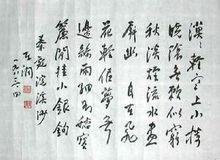 漠漠輕寒上小樓
曉陰無賴似窮
秋淡煙流水畫
屏幽自在飛
花輕似夢無
邊絲雨細如愁寶
簾閒掛小銀鉤
秦觀浣溪沙
一九八三四